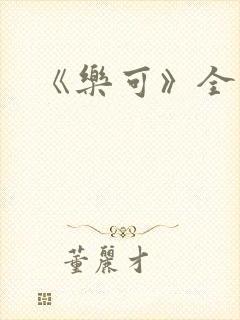 《樂可》全
董麗才